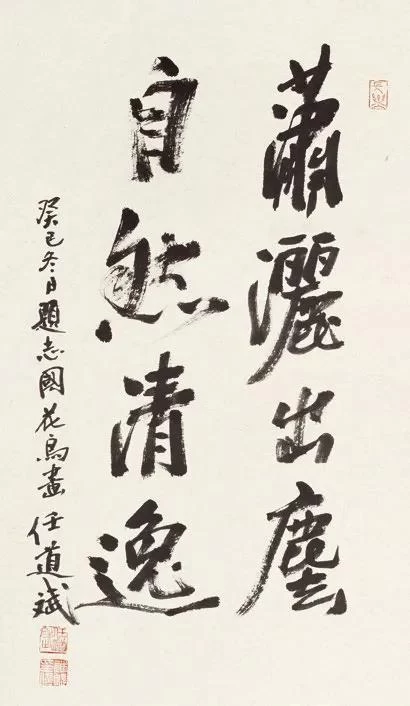 蕭灑出塵
自然清逸
癸巳冬日題志國花鳥畫 任道斌